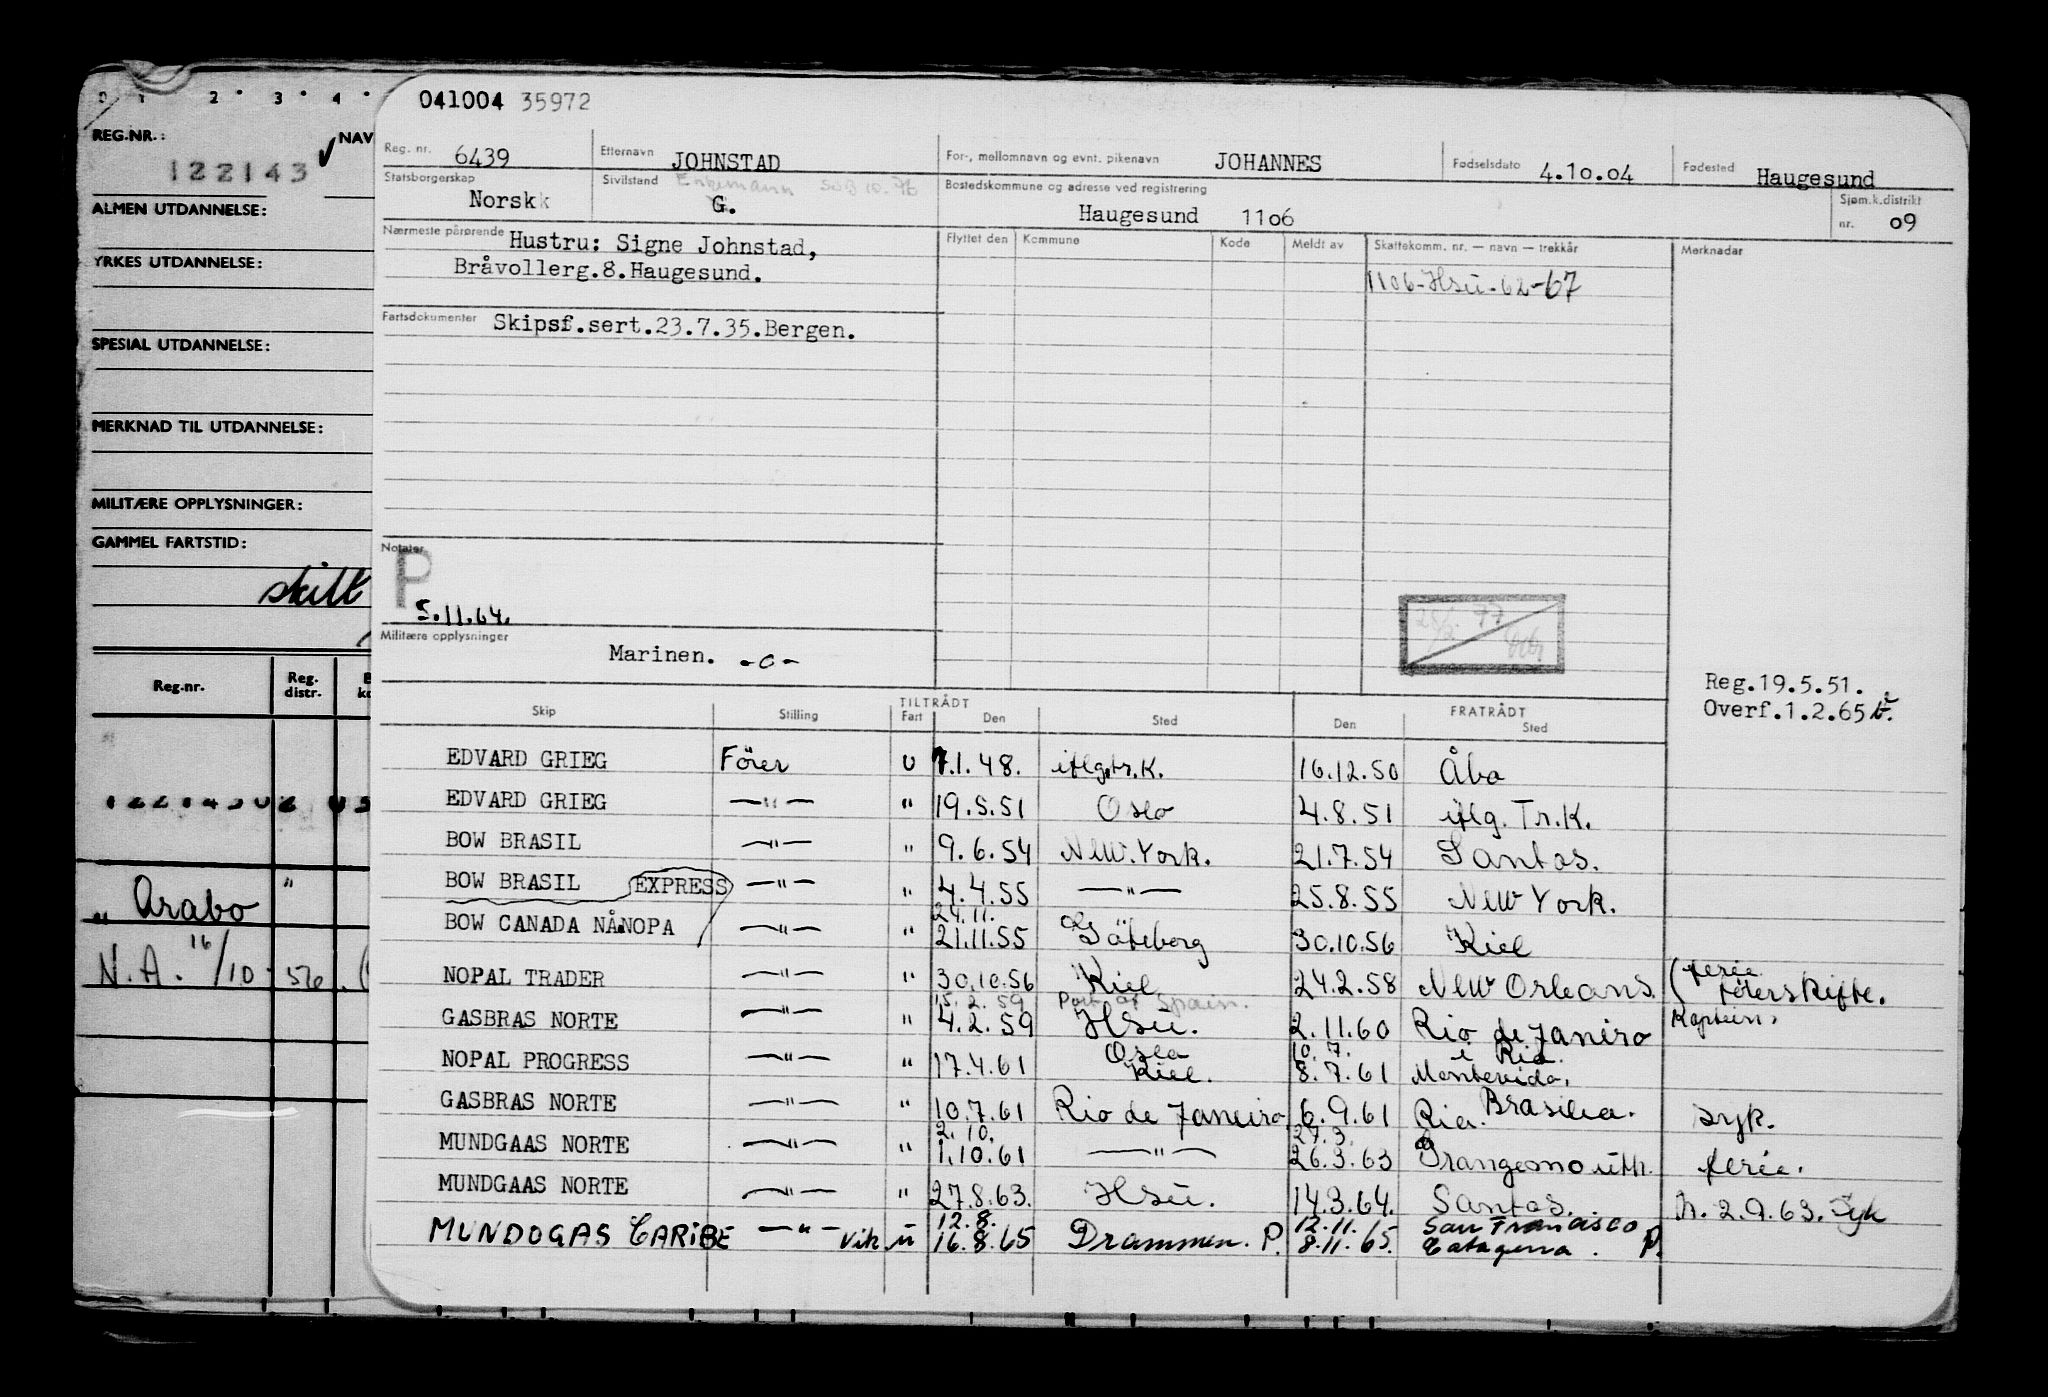 0 1 2 • 3 • 4 •
REG.NR.: NAV
122143 ✓
ALMEN UTDANNELSE:
YRKES UTDANNELSE:
SPESIAL UTDANNELSE:
MERKNAD TIL UTDANNELSE:
MILITÆRE OPPLYSNINGER:
GAMMEL FARTSTID:
skill
Reg.nr. Reg. distr.
" Arabo "
N.A. 16/10 -
041004 35972
Reg. nr. 6439 Etternavn JOHNSTAD For-, mellomnavn og evnt. pikenavn JOHANNES Fødselsdato 4.10.04 Fødested Haugesund
Statsborgerskap Norsk Sivilstand G. Enkemann 10.76 Bostedskommune og adresse ved registrering Haugesund 1106 Sjøm.k.distrikt nr. 09
Nærmeste pårørende Hustru: Signe Johnstad,
Bråvollerg.8.Haugesund.
Flyttet den Kommune Kode Meldt av Skattekomm. nr. — navn — trekkår Merknader
1106-Hsu-62-67
Fartsdokumenter Skipsf.sert.23.7.35.Bergen.
Notater
P
5.11.64.
77
Militære opplysninger Marinen. -o-
Reg.19.5.51.
Overf.1.2.65
TILTRÅDT FRATRÅDT
Skip Stilling Fart Den Sted Den Sted
EDVARD GRIEG Förer U 7.1.48. iflg.tr.K. 16.12.50 Åbo
EDVARD GRIEG —"— " 19.5.51 Oslo 4.8.51 iflg. Tr.K.
BOW BRASIL —"— " 9.6.54 New.York. 21.7.54 Santos.
BOW BRASIL EXPRESS —"— " 4.4.55 —"— 25.8.55 New York.
24.11.
BOW CANADA NÅ NOPA —"— " 21.11.55 Göteborg 30.10.56 Kiel
NOPAL TRADER —"— " 30.10.56 Kiel 24.2.58 New Orleans. (ferie
15.2.59 Port of Spain.
GASBRAS NORTE —"— " 4.2.59 Hsu. 2.11.60 Rio de Janeiro Kaptein,
Oslo 10.7. i Rio.
NOPAL PROGRESS —"— " 17.4.61 Kiel. 8.7.61 Montevido,
GASBRAS NORTE —"— " 10.7.61 Rio de Janeiro 6.9.61 Rio. Brasilia. syk.
2.10. 27.3.
MUNDGAAS NORTE —"— " 1.10.61 —"— 26.3.63 Grangemouth. ferie.
MUNDGAAS NORTE —"— " 27.8.63. Hsu. 14.3.64. Santos. n. 2.9.63. Syk
12.8. 12.11. San Francisco
MUNDOGAS CARIBE —"— vik u 16.8.65 Drammen. P. 8.11.65. Catagena. P.